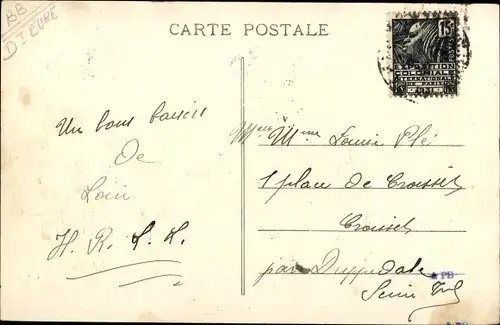 BB
Dt EURE
CARTE POSTALE
15c
EXPOSITION
COLONIALE
INTERNATIONALE
DE PARIS
1931
Un bons baisers
De
Loin
H. R. L. L.
Mme Louise Plé
1 place de Croisset
Croisset
par Dieppedale
Seine Inf